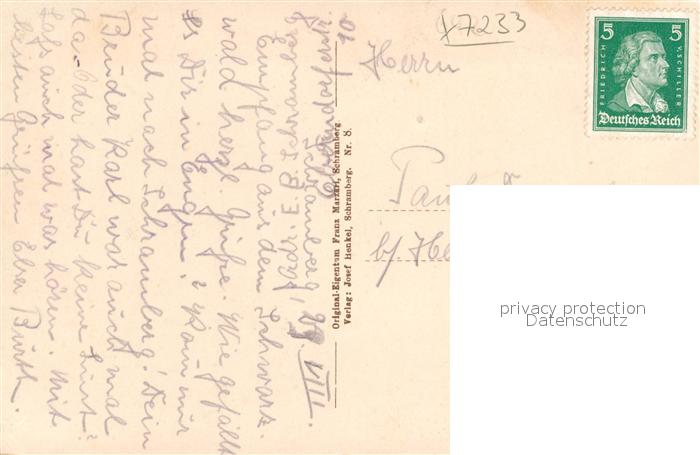 x7233
5 5
FRIEDRICH V. SCHILLER
Deutsches Reich
Herrn
Paul
b/ He
Original-Eigentum Franz Marzari, Schramberg
Verlag: Josef Henkel, Schramberg. Nr. 8.
Schramberg, 29. VIII.
Empfang aus dem Schwarz-
wald herzl. Grüße. Wie gefällt
es Dir in Engen? Kann mir
mal nach Schramberg! Dein
Bruder Karl war auch mal
da. Oder hast Du keine Lust?
Laß auch mal was hören. Mit
besten Grüßen Elsa Bürth.
privacy protection
Datenschutz